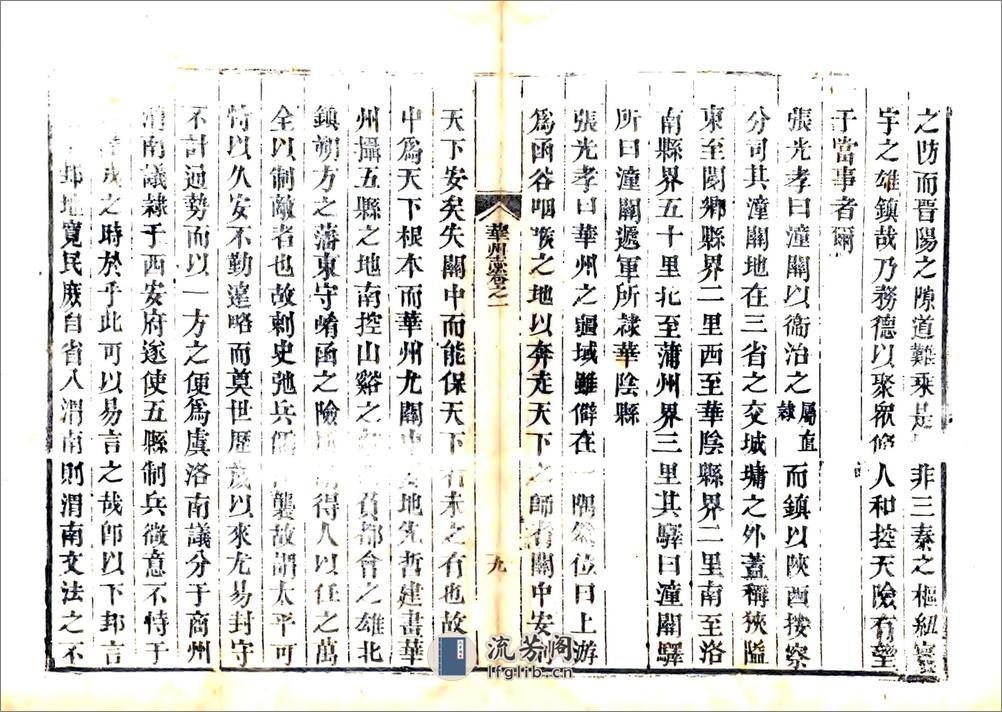 之防而晋陽之隙道難乘是 非三秦之樞紐寰
宇之雄鎮哉乃務德以聚眾脩 人和控天險有望
于當事者爾
張光孝曰潼關以衞治之屬直隸而鎮以陝西按察
分司其潼關地在三省之交城墉之外蓋稱狹隘
東至閿鄉縣界二里西至華陰縣界二里南至洛
南縣界五十里北至蒲州界三里其驛曰潼關驛
所曰潼關遞軍所隸華陰縣
張光孝曰華州之疆域雖僻在一隅然位曰上游
為函谷咽喉之地以奔走天下之師者關中安則
華州志卷之一
九
天下安矣失關中而能保天下有未之有也故
中為天下根本而華州尤關中 地先哲建書華
州攝五縣之地南控山谿之 負都會之雄北
鎮朔方之藩東守崤函之險 得人以任之萬
全以制敵者也故刺史弛兵 襲故謂太平可
恃以久安不勤遠略而莫世歷 以來尤易封守
不計通勢而以一方之便為虞洛南議分于商州
渭南議隸于西安府遂使五縣制兵微意不恃于
之時於乎此可以易言之哉即以下邽言
邽地寬民庶自省入渭南則渭南文法之不
流芳阁
lfglib.cn